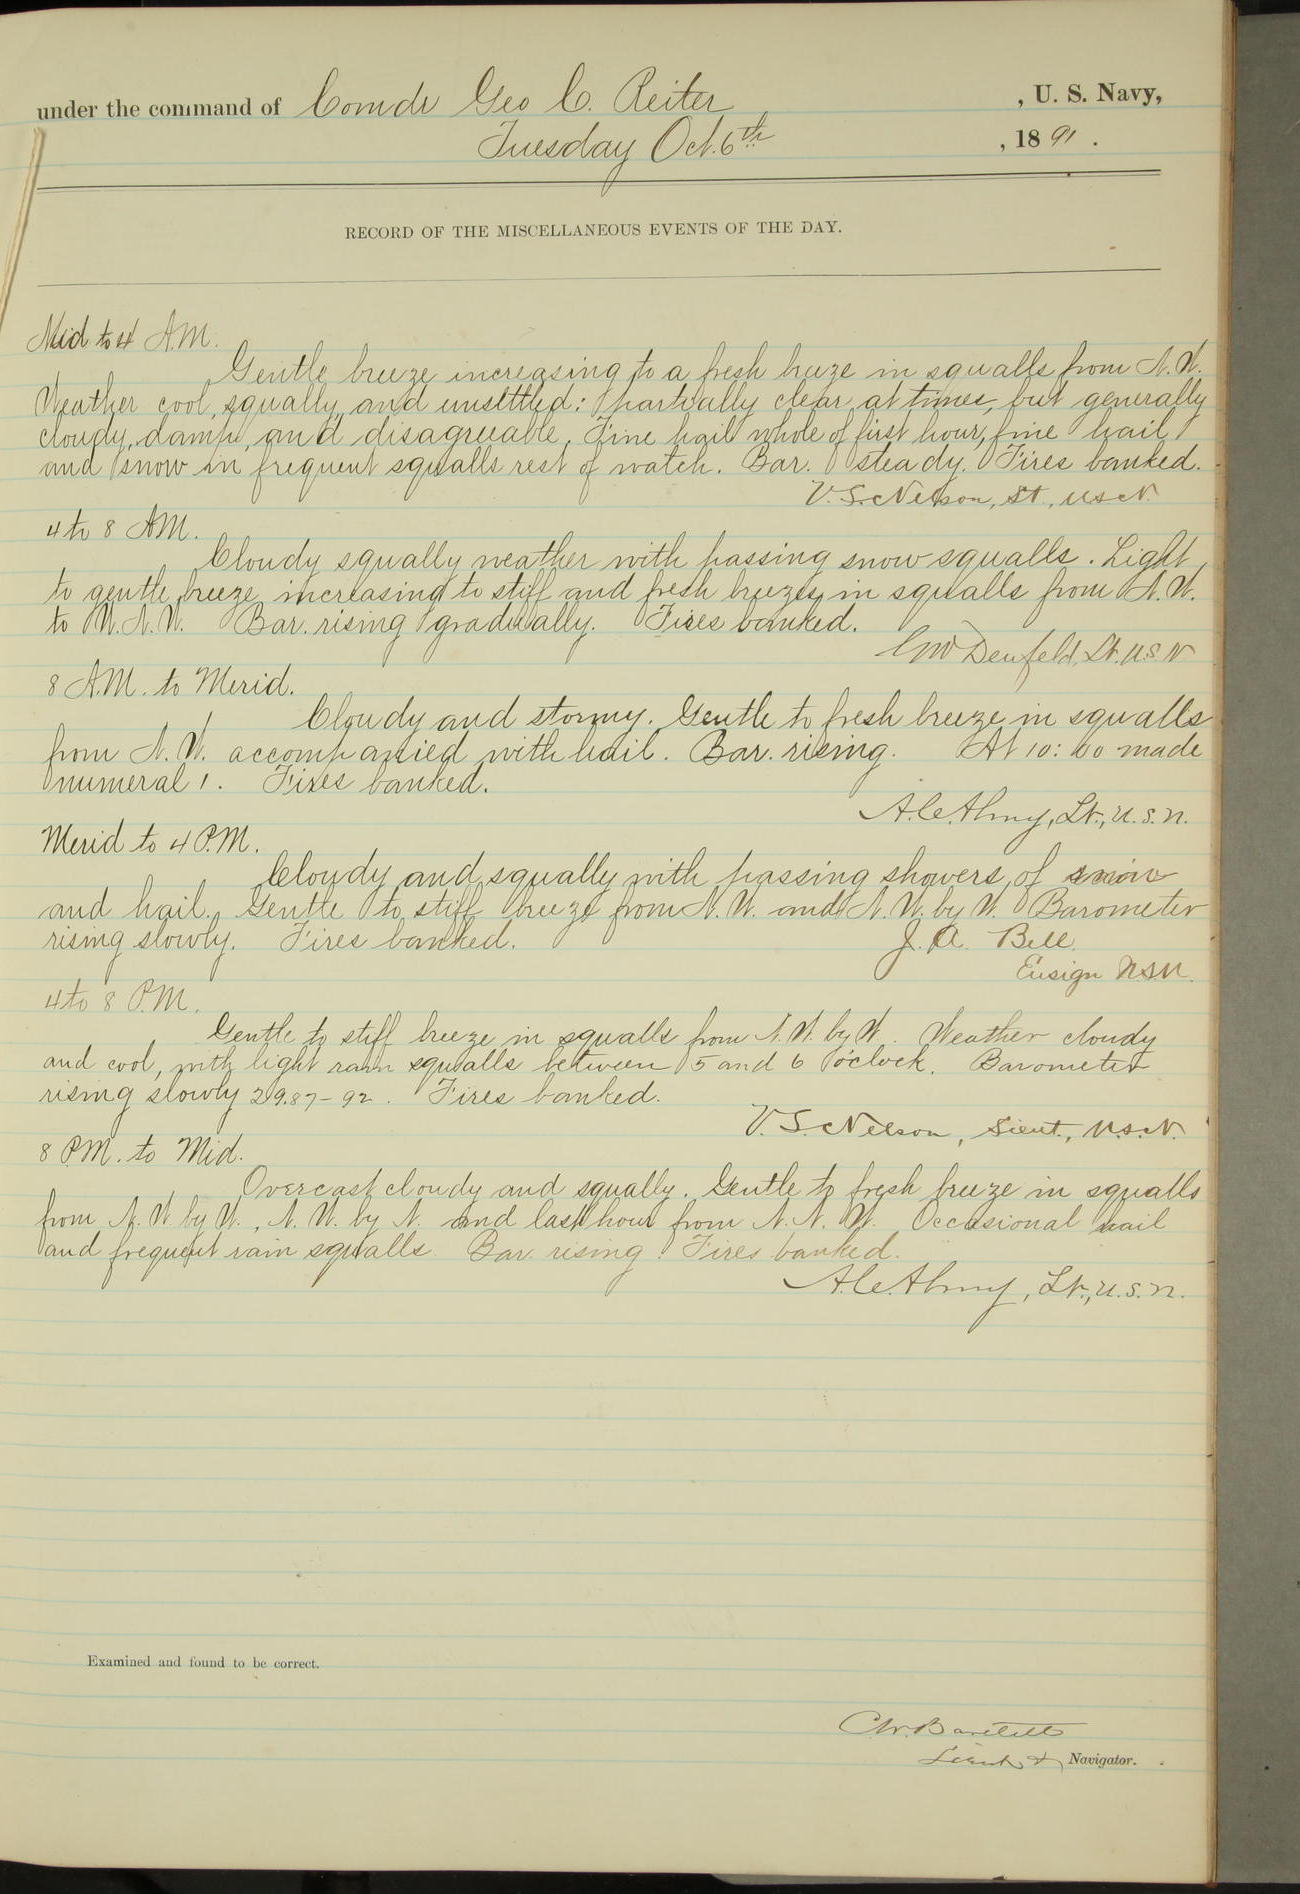 under the command of Comdr Geo C. Reiter , U. S. Navy,
Tuesday Oct. 6th , 1891 .
RECORD OF THE MISCELLANEOUS EVENTS OF THE DAY.
Mid to 4 A.M.
Gentle breeze increasing to a fresh breeze in squalls from N.W.
Weather cool, squally, and unsettled: partially clear at times, but generally
cloudy, damp, and disagreeable. Fine hail whole of first hour, fine hail
and snow in frequent squalls rest of watch. Bar. steady. Fires banked.
V. S. Nelson, Lt., U.S.N.
4 to 8 AM.
Cloudy squally weather with passing snow squalls. Light
to gentle breeze increasing to stiff and fresh breezes in squalls from N.W.
to N.N.W. Bar. rising gradually. Fires banked.
Denfeld, Lt. U.S.N
8 A.M. to Merid.
Cloudy and stormy. Gentle to fresh breeze in squalls
from N.W. accompanied with hail. Bar. rising. At 10:00 made
numeral 1. Fires banked.
A.C. Almy, Lt., U.S.N.
Merid to 4 P.M.
Cloudy and squally with passing showers of snow
and hail. Gentle to stiff breeze from N.W. and N.W. by W. Barometer
rising slowly. Fires banked.
J. A. Bell
Ensign U.S.N.
4 to 8 P.M.
Gentle to stiff breeze in squalls from N.W. by W. Weather cloudy
and cool, with light rain squalls between 5 and 6 o'clock. Barometer
rising slowly 29.87-92. Fires banked.
V. S. Nelson, Lieut., U.S.N.
8 P.M. to Mid.
Overcast cloudy and squally. Gentle to fresh breeze in squalls
from N.W. by W., N.W. by N. and last hour from N.N.W. Occasional hail
and frequent rain squalls. Bar. rising. Fires banked.
A.C. Almy, Lt., U.S.N.
Examined and found to be correct.
C.W. Bartlett
Lieut & Navigator.